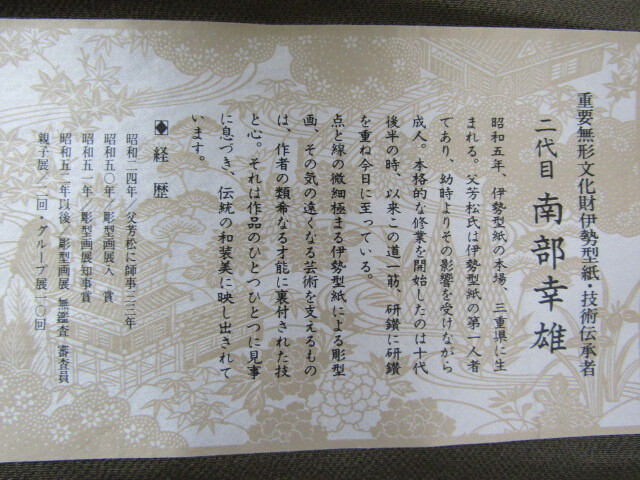 重要無形文化財伊勢型紙・技術伝承者
二代目 南部幸雄
昭和五年、伊勢型紙の本場、三重県に生
まれる。父芳松氏は伊勢型紙の第一人者
であり、幼時よりその影響を受けながら
成人。本格的な修業を開始したのは十代
後半の時、以来この道一筋、研鑽に研鑽
を重ね今日に至っている。
点と線の微細極まる伊勢型紙による彫型
画、その気の遠くなる芸術を支えるもの
は、作者の類希なる才能に裏付された技
と心。それは作品のひとつひとつに見事
に息づき、伝統の和装美に映し出されて
います。
◆経歴
昭和二四年／父芳松に師事二三年
昭和五〇年／彫型画展入賞
昭和五一年／彫型画展知事賞
昭和五二年以後／彫型画展 無鑑査 審査員
親子展／二回・グループ展一〇回